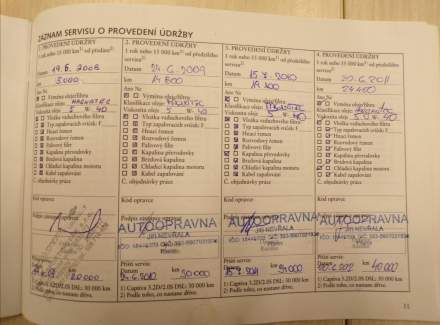 ZÁZNAM SERVISU O PROVEDENÍ ÚDRŽBY
1. PROVEDENÍ ÚDRŽBY
1 rok nebo 15 000 km¹⁾ od prodání²⁾
Datum 19.6.2008
km 5.000
Ano Ne
Výměna oleje/filtru
Klasifikace oleje:
Viskozita oleje 5 W 40
Vložka vzduchového filtru
Typ zapalovacích svíček: F
Hnací řemen
Rozvodový řemen
Palivový filtr
Kapalina převodovky
Brzdová kapalina
Chladicí kapalina motoru
Kabel zapalování
Č. objednávky práce
Kód opravce
Podpis opravce
Příští servis
km 20.000
1) Captiva 3.2D/2.0S DSL: 30 000 km
2) Podle toho, co nastane dříve.
2. PROVEDENÍ ÚDRŽBY
1 rok nebo 15 000 km¹⁾ od předešlého servisu²⁾
Datum 24.6.2009
km 14.800
Ano Ne
Výměna oleje/filtru
Klasifikace oleje:
Viskozita oleje 5 W 40
Vložka vzduchového filtru
Typ zapalovacích svíček: F
Hnací řemen
Rozvodový řemen
Palivový filtr
Kapalina převodovky
Brzdová kapalina
Chladicí kapalina motoru
Kabel zapalování
Č. objednávky práce
Kód opravce
Podpis opravce
AUTOOPRAVNA
JIŘÍ NEVŘALA
Příští servis
km 30.000
1) Captiva 3.2D/2.0S DSL: 30 000 km
2) Podle toho, co nastane dříve.
3. PROVEDENÍ ÚDRŽBY
1 rok nebo 15 000 km¹⁾ od předešlého servisu²⁾
Datum 15.7.2010
km 19.100
Ano Ne
Výměna oleje/filtru
Klasifikace oleje:
Viskozita oleje 5 W 40
Vložka vzduchového filtru
Typ zapalovacích svíček: F
Hnací řemen
Rozvodový řemen
Palivový filtr
Kapalina převodovky
Brzdová kapalina
Chladicí kapalina motoru
Kabel zapalování
Č. objednávky práce
Kód opravce
Podpis opravce
AUTOOPRAVNA
JIŘÍ NEVŘALA
Příští servis
km
1) Captiva 3.2D/2.0S DSL: 30 000 km
2) Podle toho, co nastane dříve.
4. PROVEDENÍ ÚDRŽBY
1 rok nebo 15 000 km¹⁾ od předešlého servisu²⁾
Datum 20.6.2011
km
Ano Ne
Výměna oleje/filtru
Klasifikace oleje:
Viskozita oleje 5 W 40
Vložka vzduchového filtru
Typ zapalovacích svíček: F
Hnací řemen
Rozvodový řemen
Palivový filtr
Kapalina převodovky
Brzdová kapalina
Chladicí kapalina motoru
Kabel zapalování
Č. objednávky práce
Kód opravce
Podpis opravce
AUTOOPRAVNA
JIŘÍ NEVŘALA
Příští servis
km 40.000
1) Captiva 3.2D/2.0S DSL: 30 000 km
2) Podle toho, co nastane dříve.